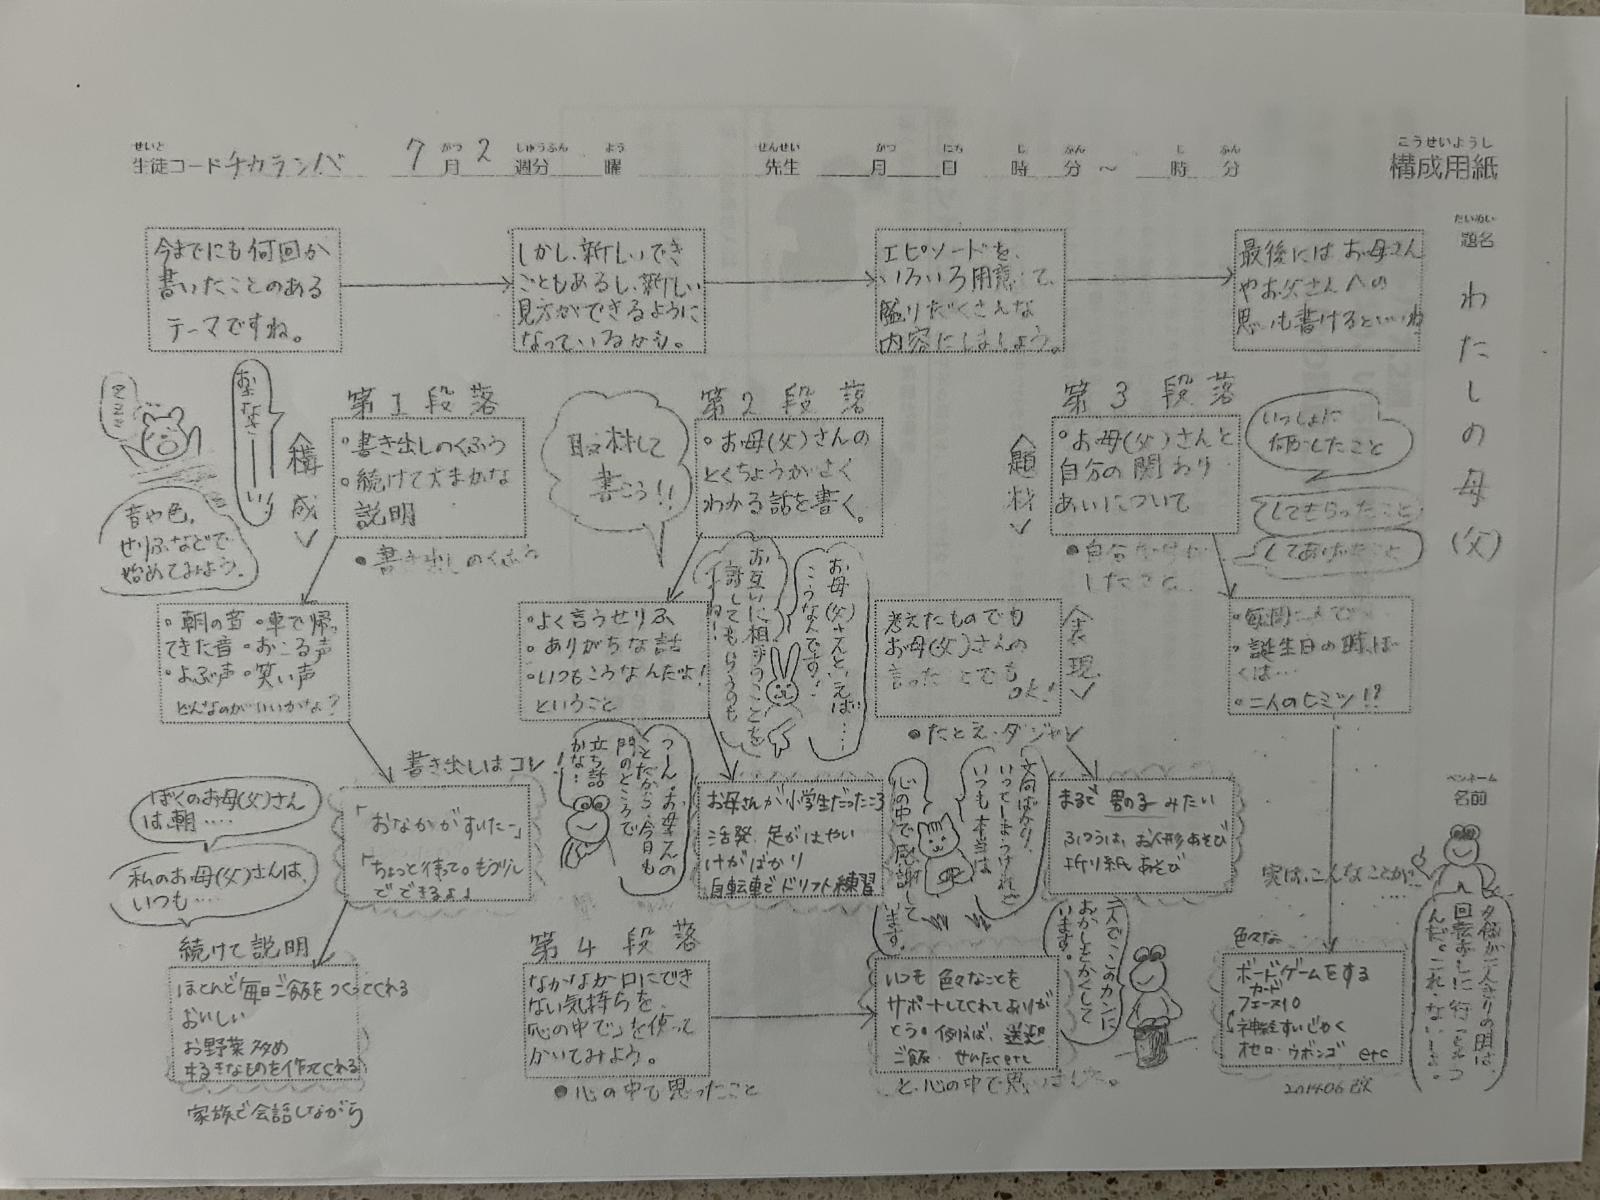 せいと
生徒コードチカランバ 7月2週分 曜
がつ しゅうふん よう
先生 月 日 時 分 〜 時 分
せんせい がつ にち じ ふん じ ふん
こうせいようし
構成用紙
だいめい
題名
わたしの母(父)
今までにも何回か
書いたことのある
テーマですね。
しかし、新しいでき
ごともあるし、新しい
見方ができるように
なっているかも。
エピソードを、
いろいろ用意して、
盛りだくさんな
内容にしましょう。
最後にはお母さん
やお父さんへの
思いも書けるといいね
〈構成〉
第1段落
・書き出しのくふう
・続けて大まかな
説明
●書き出しのくふう
音や色、
せりふなどで
始めてみよう。
・朝の音・車で帰っ
てきた音・おこる声
・よぶ声・笑い声
どんなのがいいかな?
書き出しはコレ!
ぼくのお母(父)さん
は、朝‥‥
私のお母(父)さんは、
いつも‥‥
「おなかがすいたー」
「ちょっと待って。もう少し
でできるよ」
続けて説明
ほとんど毎日ご飯をつくってくれる
おいしい
お野菜多め
好きなものを作ってくれる
家族で会話しながら
取材して
書こう!!
第2段落
・お母(父)さんの
とくちょうがよく
わかる話を書く。
・よく言うせりふ
・ありがちな話
・いつもこうなんだよ!
ということ
お母(父)さんといえば‥‥
こうなんです!
お互いに相手のことを
話してもらうのも
いいね!
うーん。お母さんの
ことだから、今日も
門のところで
立ち話
かな?
お母さんが小学生だったころ
活発、足がはやい
けがばかり
自転車でドリフト練習
〈題材〉
第3段落
・お母(父)さんと
自分の関わり
あいについて
いっしょに
何かしたこと
してもらったこと
してあげたこと
・誕生日の時、ぼ
くは‥‥
・二人のヒミツ!?
〈表現〉
考えたものでも
お母(父)さんの
言ったことでも
OK!
●たとえ・ダジャレ
まるで 男の子 みたい
ふつうは、お人形あそび
折り紙あそび
文句ばかり、
いってしまうけれど
いつも本当は
心の中で感謝して
います。
二人でこのカンに
おかしをかくして
います。
実は、こんなことが‥
色々な
ボードゲームをする
カード
フェーズ10
神経すいじゃく
オセロ・ウボンゴ etc
201406改
第4段落
なかなか口にでき
ない気持ちを、
「心の中で」を使って
かいてみよう。
●心の中で思ったこと
いつも 色々なことを
サポートしてくれてありが
とう。例えば、送迎
ご飯・せんたくetc
と、心の中で思いました。
ペンネーム
名前